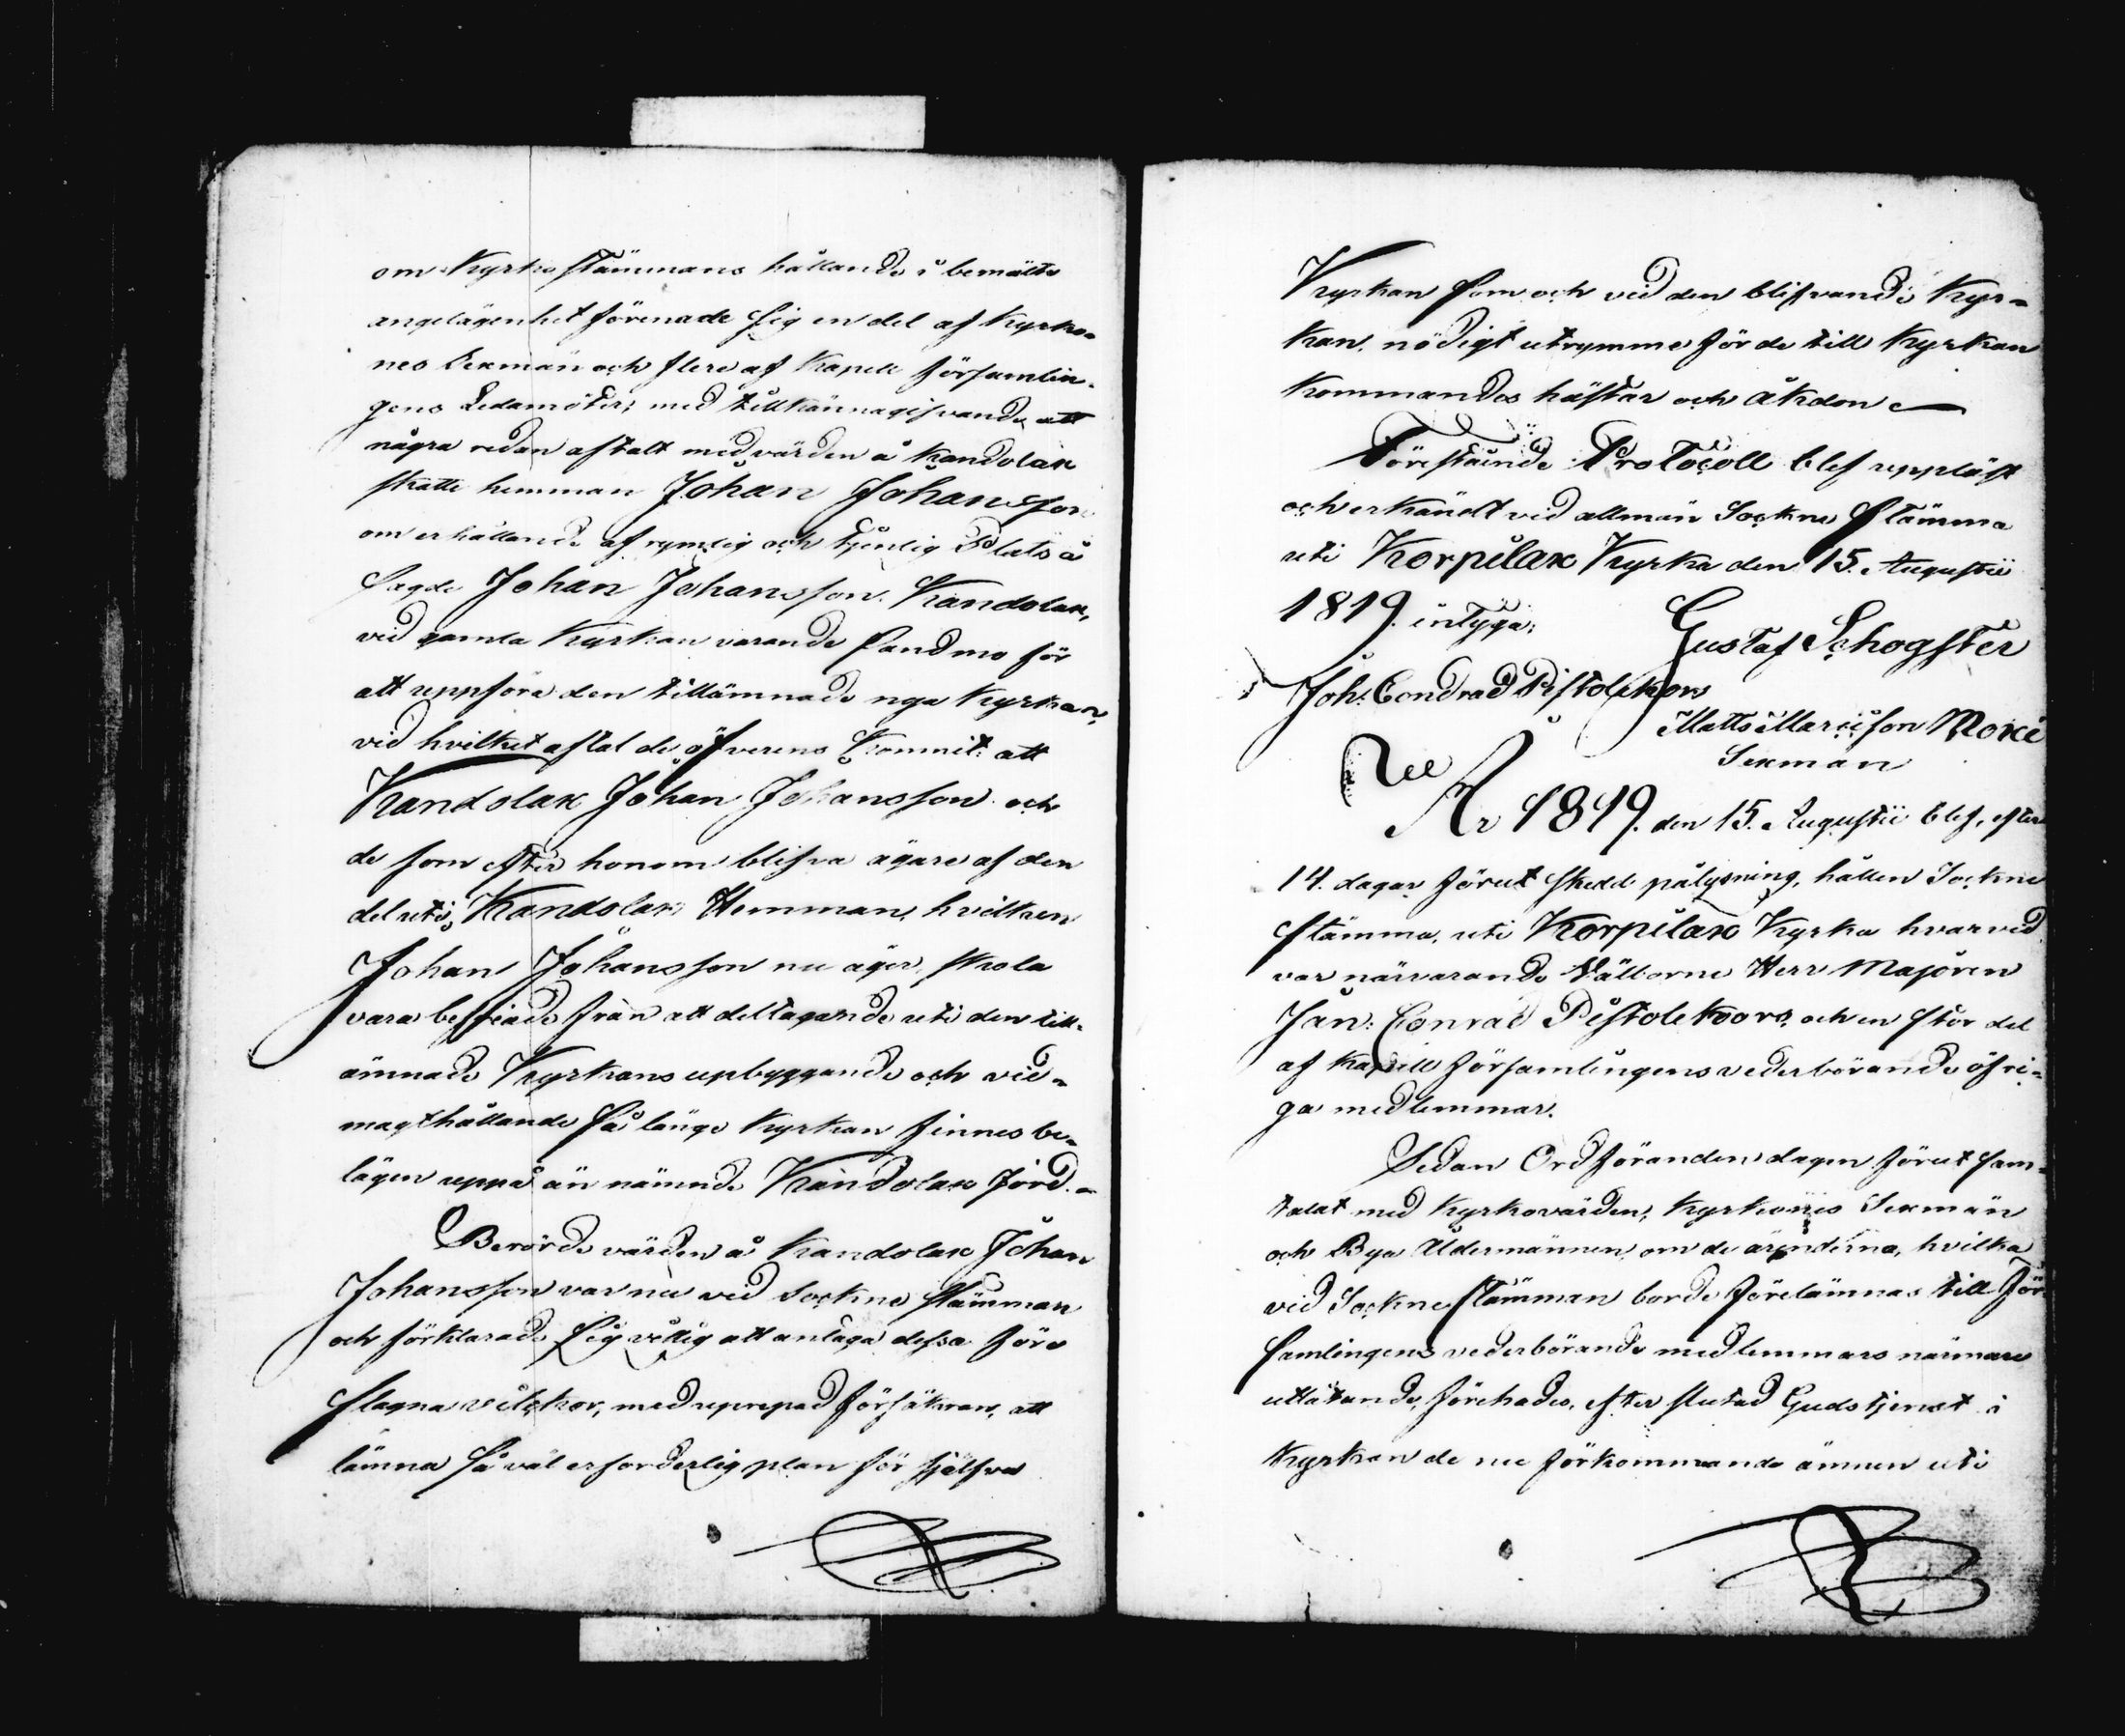 om Kyrko stämmans hållande i bemälte
angelägenhet förenade sig en del af Kyrko-
nes Sexmän och flere af Kapell församlin-
gens Ledamöter, med tillkännagifvande att
några redan aftalt med värden å Kandolax
skatte hemman Johan Johansson
om erhållande af rymlig och tjenlig Plats å
sagde Johan Johansson Kandolax,
vid gamla Kyrkan varande sandmo för
att uppföra den tillämnade nya Kyrkan,
vid hvilket aftal de öfverens kommit att
Kandolax Johan Johansson och
de som efter honom blifva ägare af den
del uti Kandolax Hemman, hvilken
Johan Johansson nu äger, skola
vara befriade från att deltagande uti den till-
ämnade Kyrkans upbyggande och vid-
magthållande så länge Kyrkan finnes be-
lägen uppå än nämnde Kandolax jord.
Berörde värden å Kandolax Johan
Johansson var nu vid Sockne stämman
och förklarade sig villig att antaga dessa före
slagna vilckor, med uprepad försäkran, att
lämna så väl erforderlig plan för sjelfva
Kyrkan som och vid den blifvande Kyr-
kan nödigt utrymme för de till Kyrkan
Kommandes hästar och åkdon
Förestående Protocoll blef uppläst
och erkändt vid allmän Sockne stämma
uti Korpilax Kyrka den 15. Augustii
1819. intyga;
Gustaf Schogster
Joh: Condrad Pistolekors
Matts Mariisson Moxi
Sexman
År 1819. den 15. Augustii blef, efter
14. dagar förut skedd pålysning, hållen Sockne
stämma, uti Korpilax Kyrka hvarvid
var närvarande Välborne Herr Majoren
Jan: Conrad Pistolekors och en stor del
af Kapell församlingens vederbörande öfri-
ga medlemmar.
Sedan Ordföranden dagen förut sam-
talat med Kyrkovärden, Kyrkones Sexmän
och Bya Åldermännen om de ärenderna, hvilka
vid Sockne stämman borde förelämnas till För
samlingens vederbörande medlemmars närmare
utlåtande, förehades, efter slutad Gudstjenst i
Kyrkan de nu förkommande ämnen uti